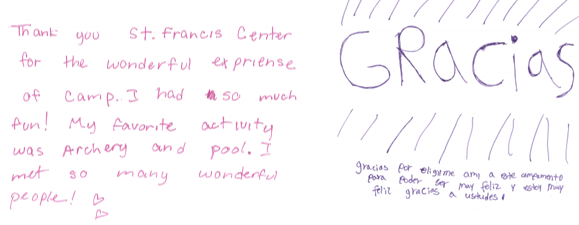 Thank you St. Francis Center
for the wonderful expriense
of camp. I had so much
fun! My favorite activity
was Archery and pool. I
met so many wonderful
people!
GRacias
gracias por eligirme ami a este campamento
para poder ser muy feliz y estoy muy
feliz gracias a ustudes.